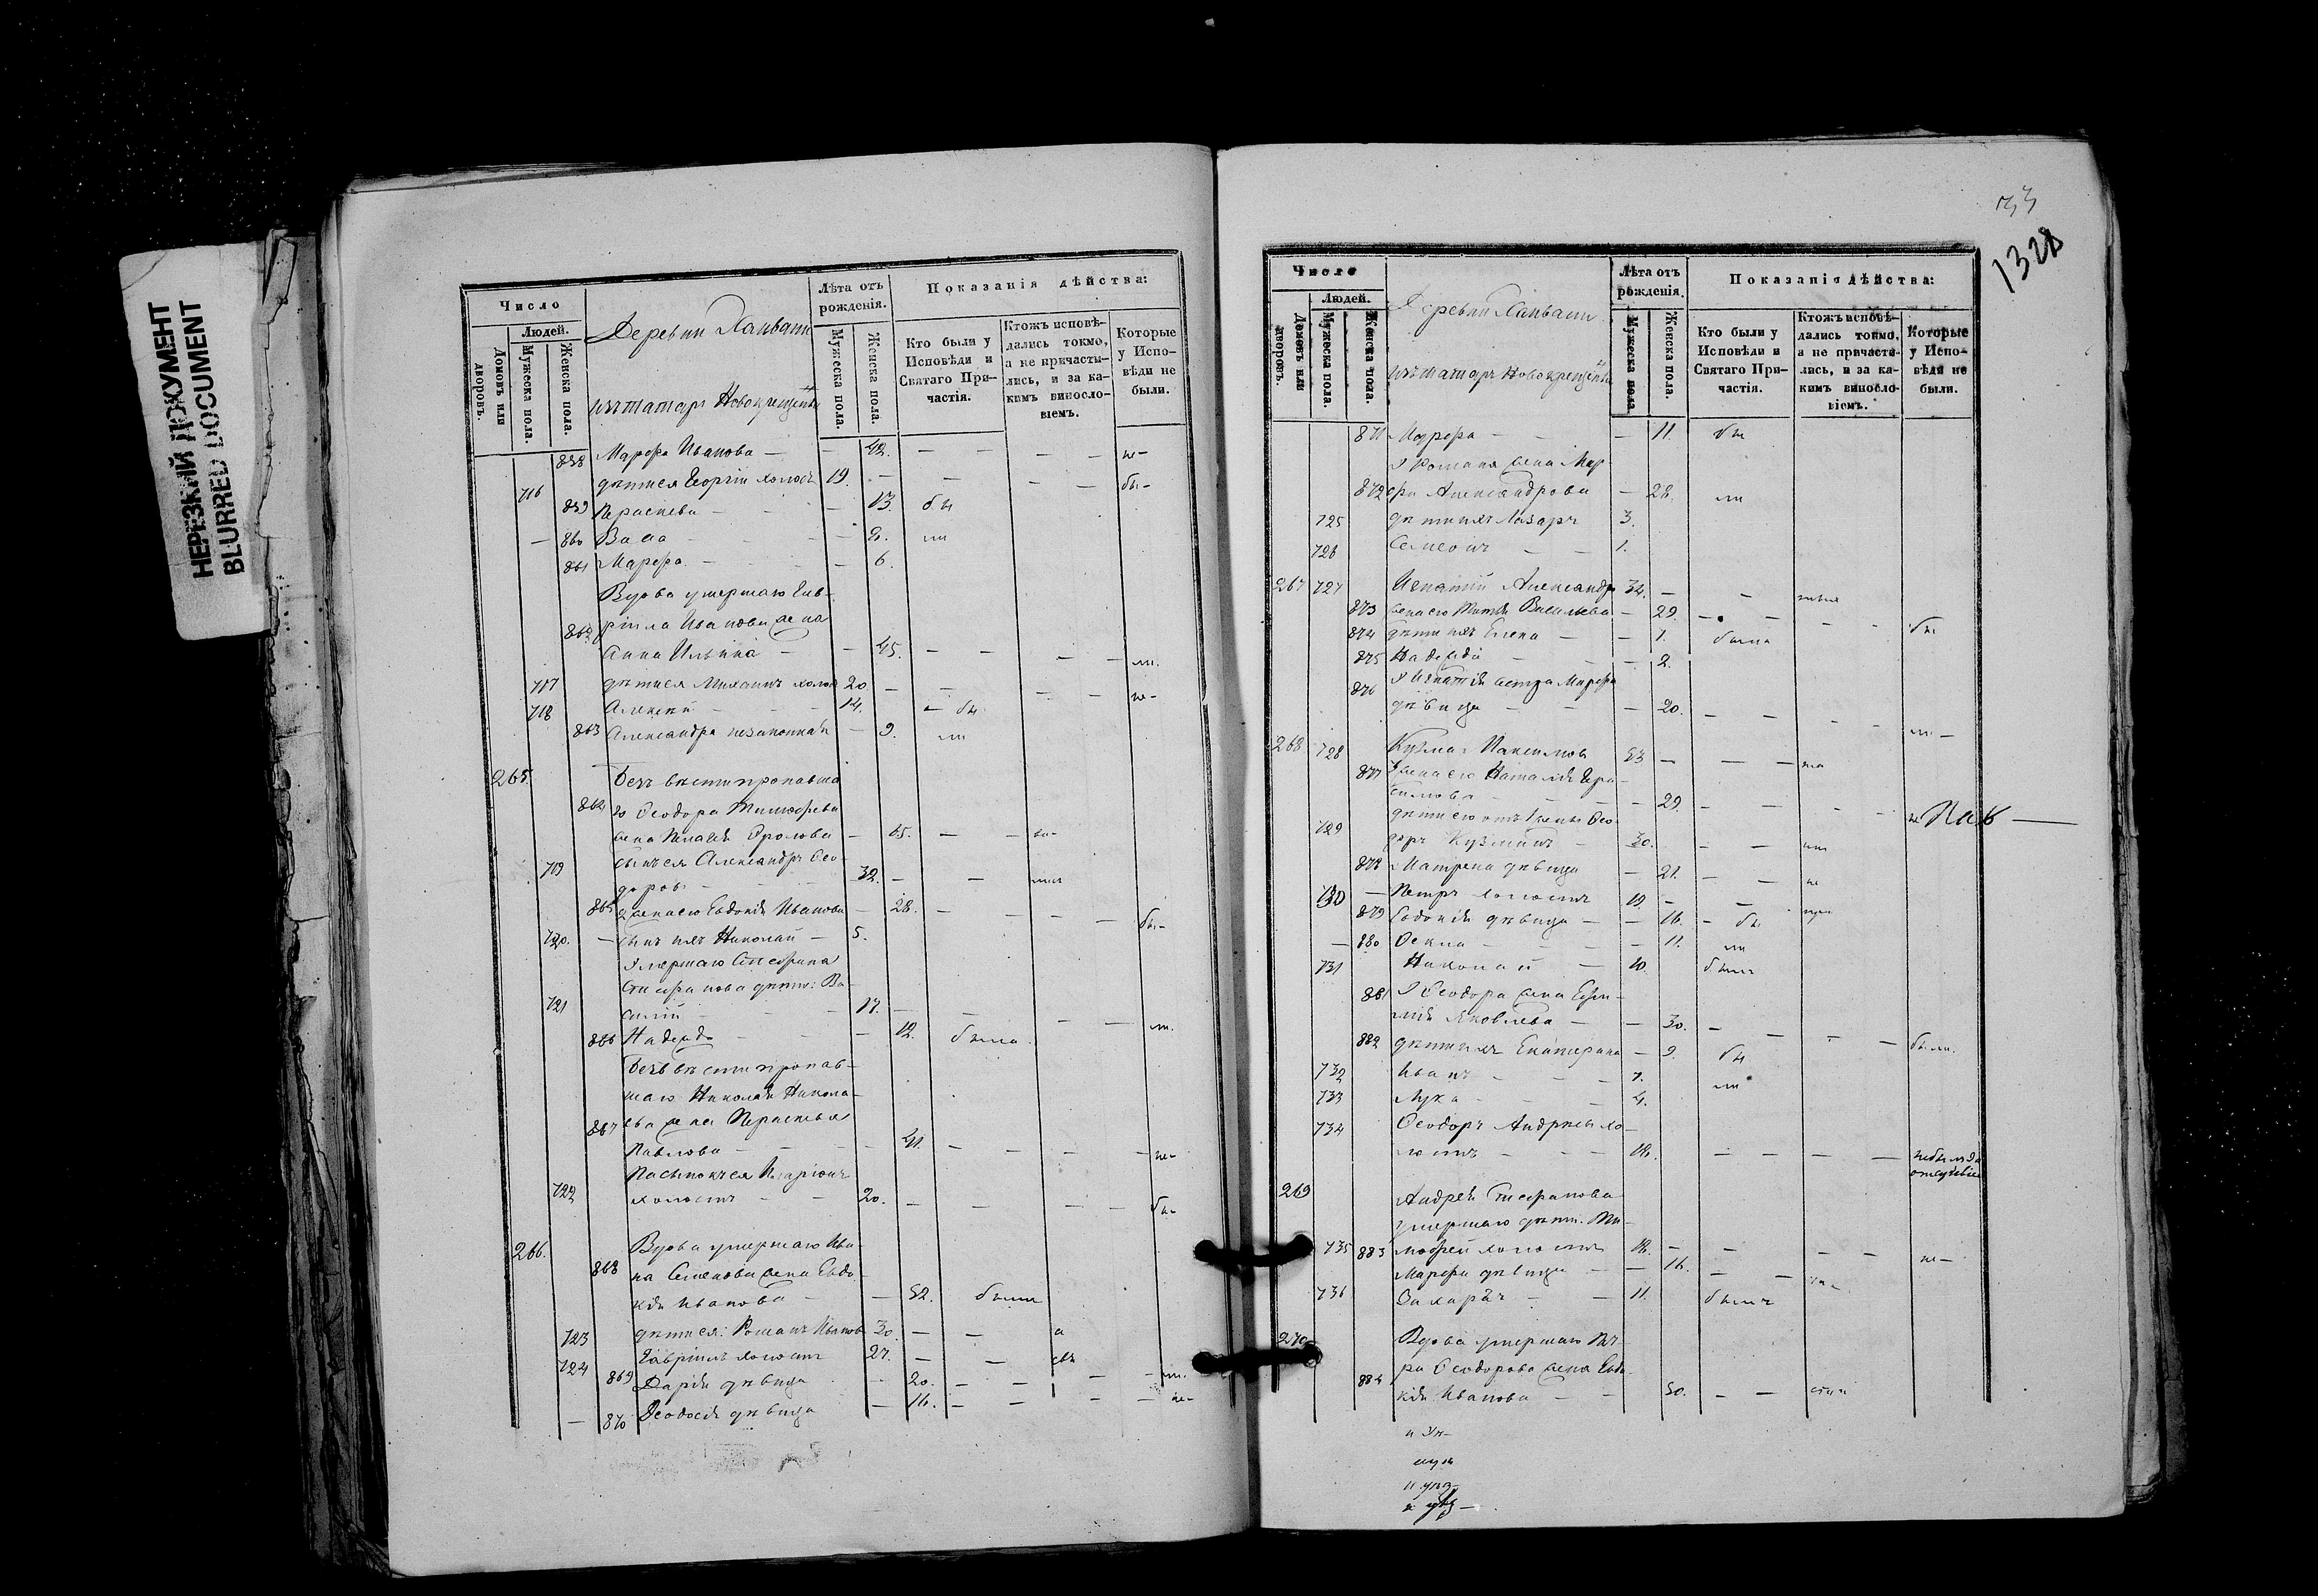 НЕРЕЗКИЙ ДОКУМЕНТ
BLURRED DOCUMENT
Число
Людей.
Домовъ или дворовъ.
Мужеска пола.
Женска пола.
Деревни
изъ татаръ Новокрещены
Лѣта отъ рожденія.
Мужеска пола.
Женска пола.
Показанія дѣйства:
Кто были у Исповѣди и Святаго Причастія.
Ктожъ исповѣдались токмо, а не причастились, и за какимъ винословіемъ.
Которые у Исповѣди не были.
858 Марфа Иванова — — 42. — — — — не-
716 дѣти ея Георгій холостъ 19. — — — — бы-
859 Параскева — — 13. бы
860 — ли
861 Марфа — — 6.
Вдова умершаго Гав-
862 ріила Иванова жена
Анна Ильина — — 45. — — — — ли.
717 дѣти ея Михаилъ холос 20. — — — — не-
718 Алексѣй — 14. — бы
863 Александра незаконная — 9. ли
265. Безъ вѣсти пропавша
864 го Ѳеодора Тимоѳеева
жена Пелагія Фролова — 65. — —
719 сынъ ея Александръ Ѳео-
доровъ — 32. — —
865 жена его Евдокія Иванова — 28. — — — — бы-
720. — сынъ ихъ Николай — 5.
Умершаго Стефана
Стефанова дѣти: Ва-
721 силій — — 17. — — — — ли.
866 Надежда — — 12. была
Безъ вѣсти пропав-
шаго Николая Никола-
867 ева жена Параскева
Павлова — — 41. — — — — не-
Пасынокъ ея Иларіонъ
722 холостъ — — 20. — — — — бы-
266. Вдова умершаго Ива-
868 на Семенова жена Евдо-
кія Иванова — — 52. были
723 дѣти ея: Романъ Иванов 30. — —
724 Гавріилъ холостъ 27. — —
869 Дарія дѣвица — 20. — — — — ли.
— 870 Ѳеодосія дѣвица — 16. — — — — не-
33
1328
Число
Людей.
Домовъ или дворовъ.
Мужеска пола.
Женска пола.
Деревни
изъ татаръ Новокрещены
Лѣта отъ рожденія.
Мужеска пола.
Женска пола.
Показанія дѣйства:
Кто были у Исповѣди и Святаго Причастія.
Ктожъ исповѣдались токмо, а не причастились, и за какимъ винословіемъ.
Которые у Исповѣди не были.
871 Марфа — — 11. бы
У Романа жена Мар-
872 фа Александрова — 28. ли
725 дѣти ихъ Лазарь 3.
726 Симеонъ — — 1.
267 727 Игнатій Александр 34. — —
873 жена его Васильева — 29. — — — — бы
874 дѣти ихъ Елена — — 7. были
875 Надежда — 2.
876 У Игнатія сестра Марфа
дѣвица — — 20. — — — — ли-
268 728 Кузма 53 — — —
877 жена его Наталія Гера-
симова — — 29. — — — не
дѣти его отъ 1 жены Ѳео-
729 доръ Кузминъ — 30. — —
878 Матрена дѣвица — 21. — — не
730 — Петръ холостъ 19. — —
879 Евдокія дѣвица — — 16. — бы
— 880 Ѳекла — — 11. ли
731 Николай — 10. былъ
881 У Ѳеодора жена Евфи-
мія Яковлева — — 30. — — — — были.
882 дѣти ихъ Екатерина — 9. бы
732 Иванъ — — 7. ли
733 Лука — — 4.
734 Ѳеодоръ Андреевъ хо-
лостъ — — 18. — — — — не былъ за отлучкою
269 Андрея Стефанова
умершаго дѣти: Ти-
735 883 моѳей холостъ 18. — — — — не-
Марфа дѣвица — — 16. — —
736 Захаръ — — 11. былъ
270 Вдова умершаго Пет-
ра Ѳеодорова жена Евдо-
884 кія Иванова — — 50. — —